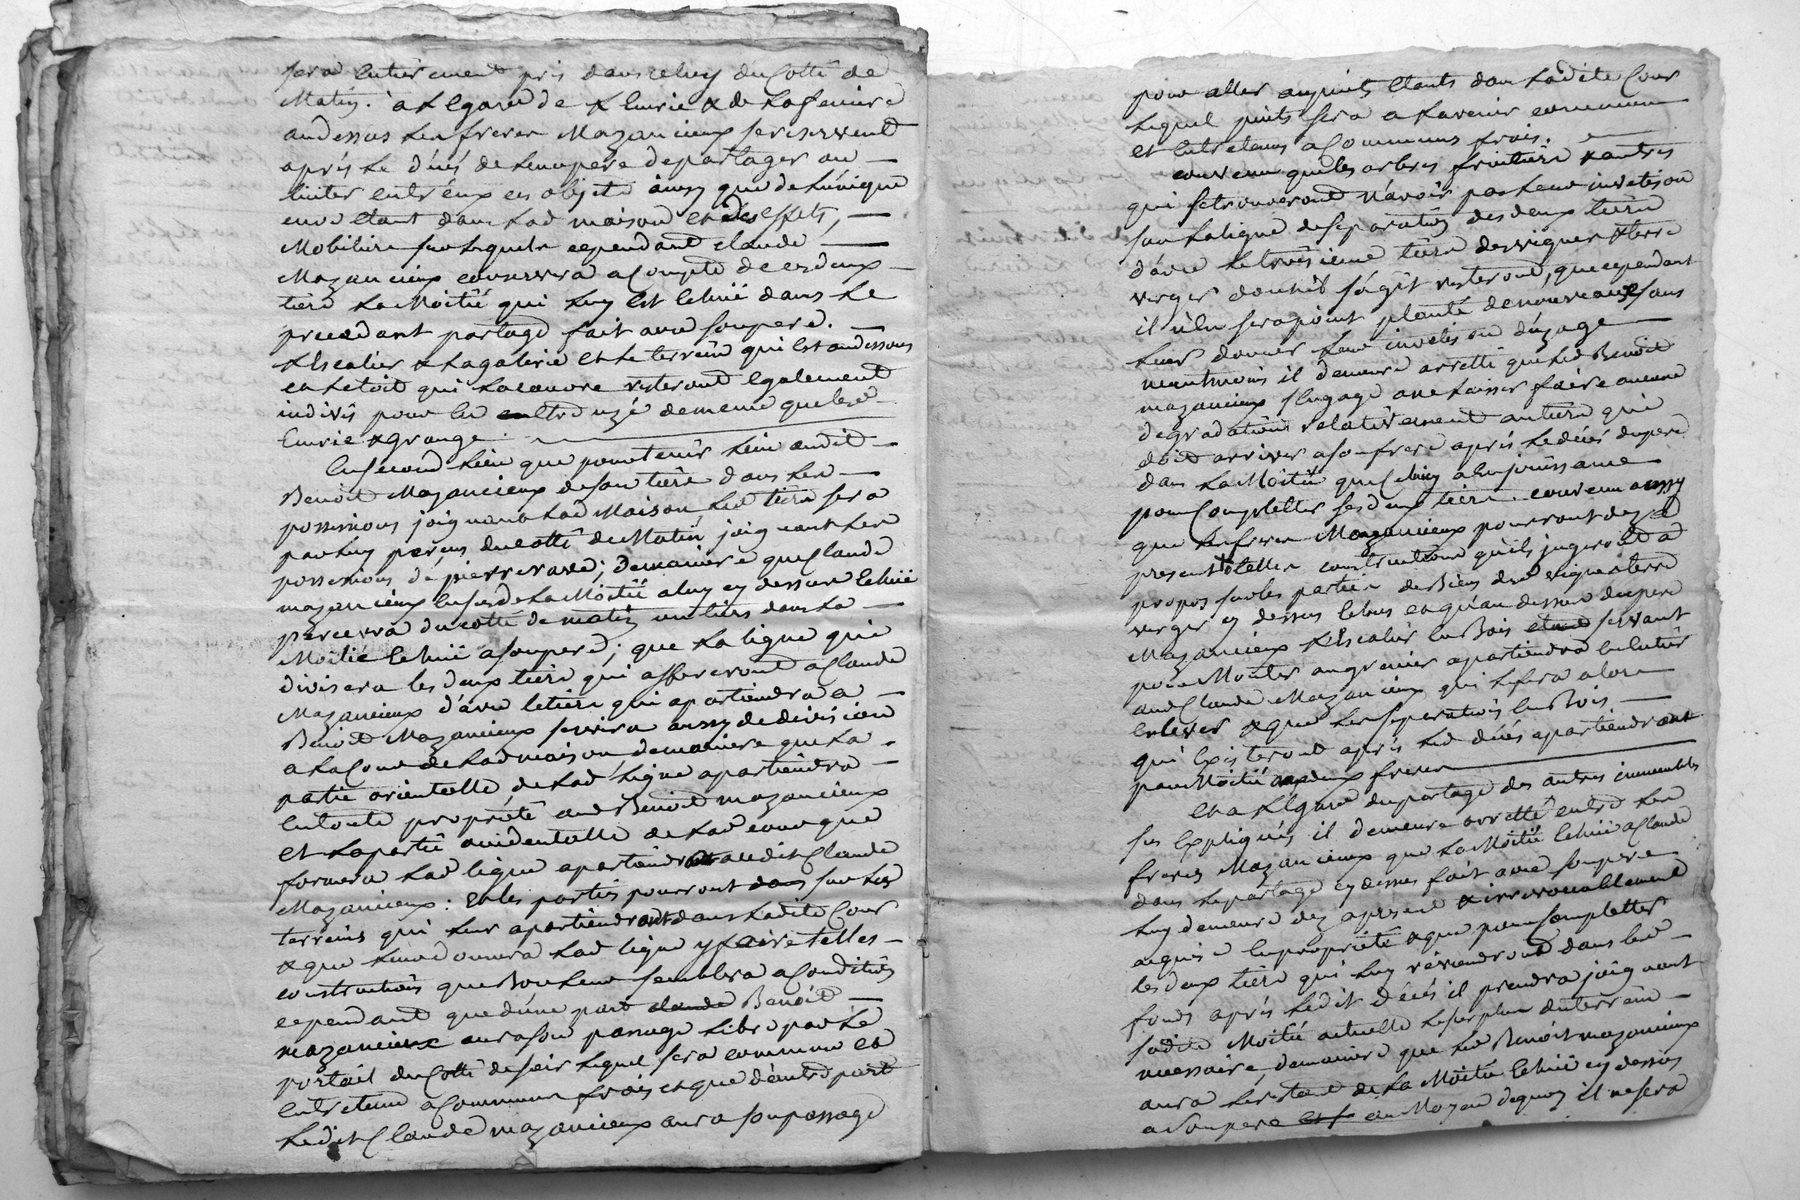 sera entierement pris dans celuy du Cotté de
Matin. a l'egard de l'Ecurie & de la feniere
au dessus les freres Mazancieux se reservent
après le décés de leur pere de partager ou
liciter entr'eux ces objets ainsy que de l'unique
cuve étant dans lad maison et des effets,
Mobiliers sur lesquels cependant claude
Mazancieux conservera a Compte de ces deux
tiers la Moitié qui luy est echuë dans le
precedant partage fait avec son pere.
l'Escalier & la galerie et le terrein qui est au dessous
et le toit qui la couvre resteront egalement
indivis pour les en uzé de meme que les d
Ecurie & grange.
En second lieu que pour tenir lieu audit
Benoit Mazancieux de son tiers dans les
possessions joignant lad Maison, led tiers sera
par luy perçus du cotté de Matin joignant les
possessions de pierre; de maniere que Claude
mazancieux en sus de la Moitié a luy cy dessus echuë
percevra du cotté de matin un tiers dans la
Moitié echuë a son pere; que la ligne qui
divisera les deux tiers qui afferront a Claude
Mazancieux d'avec le tiers qui apartiendra a
Benoit Mazancieux servira aussy de division
a la Cour de lad maison, de maniere que la
partie orientalle de lad ligne apartiendra
en toute proprieté aud Benoit mazancieux
et la partie occidentalle de lad cour que
formera lad ligne apartiendra audit Claude
Mazancieux: et les parties pourront dans sur les
terreins qui leur apartiendront dans ladite Cour
& que leur donnera lad ligne y faire telles
constructions que bon leur semblera a Condition
cependant que d'une part claude Benoit
mazancieux aura son passage libre par le
portail du Cotté de soir lequel sera commun et
entretenu a Communs frais et que d'autre part
ledit Claude mazancieux aura son passage
pour aller au puits étants dans ladite Cour
lequel puits sera a l'avenir commun
et entretenus a Communs frais.
convenu que les arbres fruitiers & autres
qui se trouveront n'avoir pas leur invetison
sur la ligne de separation des deux tiers
d'avec le troisieme tiers des vignes & terre
verger dont il s'agit resteront, que cependant
il n'en sera point planté de nouveaux sans
leur donner leur invetison d'uzage
neantmoins il demeure arretté que led Benoit
mazancieux s'engage a ne laisser faire aucune
degradation relativement au tiers qui
doit arriver a son frere après le décés du pere
dans la Moitié que Celuy a en jouissance
pour Completter ses deux tiers. convenu aussy
que les freres Mazancieux pourront dez a
present telles constructions qu'ils jugeront a
propos sur les parties des Biens dud vigne & terre
verger cy dessus echus et qu'au dessus du pere
Mazancieux l'Escalier en Bois etant servant
pour Monter au grenier apartiendra en entier
aud Claude Mazancieux qui le fera alors
enlever & que les separations en Bois
qui existeront après led décés apartiendront
par Moitié aux deux freres
et a l'Egard du partage des autres immeubles
sus Expliqués, il demeure arretté entre les
freres Mazancieux que la Moitié echuë a Claude
dans le partage cy dessus fait avec son pere
luy demeure dez a present & irrevocablement
acquise en proprieté & que pour Completter
les deux tiers qui luy reviendront dans les
fonds après ledit Décés il prendra joignant
sadite Moitié actuelle le surplus du terrein
necessaire, de maniere que led Benoit mazancieux
aura le restant de la Moitié echuë cy dessus
a son pere au Moyen de quoy il ne sera